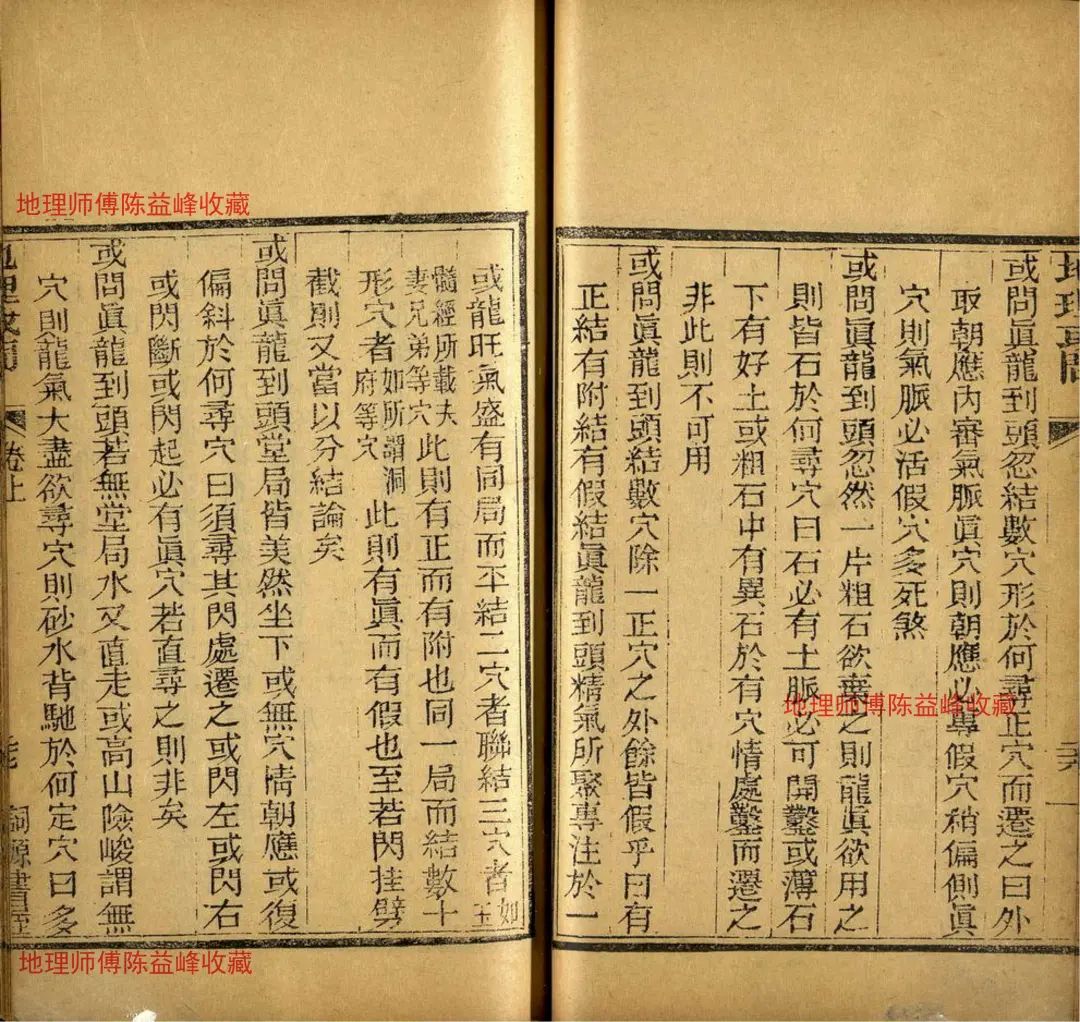 地理或問
或問眞龍到頭忽結數穴形於何尋正穴而遷之曰外
取朝應內審氣脈眞穴則朝應必專假穴稍偏側眞
穴則氣脈必活假穴多死煞
或問眞龍到頭忽然一片粗石欲棄之則龍眞欲用之
則皆石於何尋穴曰石必有土脈必可開鑿或薄石
下有好土或粗石中有異石於有穴情處鑿而遷之
非此則不可用
或問眞龍到頭結數穴除一正穴之外餘皆假乎曰有
正結有附結有假結眞龍到頭精氣所聚專注於一
或龍旺氣盛有同局而平結二穴者聯結三穴者如玉
髓經所載夫妻兄弟等穴此則有正而有附也同一局而結數十
形穴者如所謂洞府等穴此則有眞而有假也至若閃挂劈
截則又當以分結論矣
或問眞龍到頭堂局皆美然坐下或無穴情朝應或復
偏斜於何尋穴曰須尋其閃處遷之或閃左或閃右
或閃斷或閃起必有眞穴若直尋之則非矣
或問眞龍到頭若無堂局水又直走或高山險峻謂無
穴則龍氣大盡欲尋穴則砂水背馳於何定穴曰多
地理或問 卷上
地理师傅陈益峰收藏
地理师傅陈益峰收藏
地理师傅陈益峰收藏